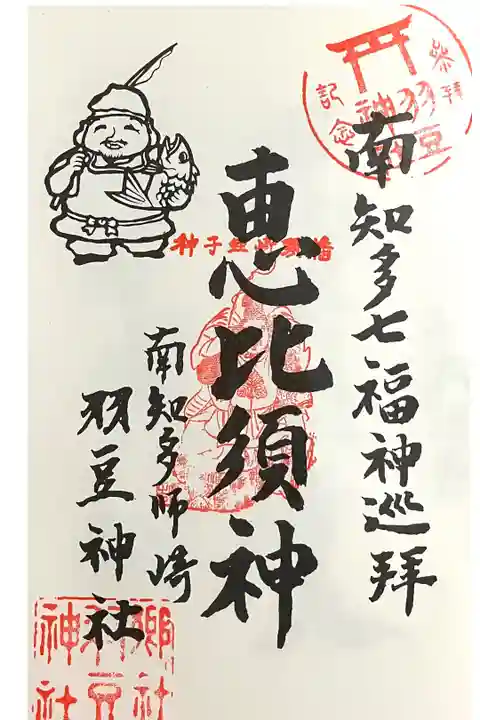 南知多七福神巡拜
恵比須神
南知多師崎
羽豆神社
参拝
羽豆
神
記念
郷社
羽豆
神社